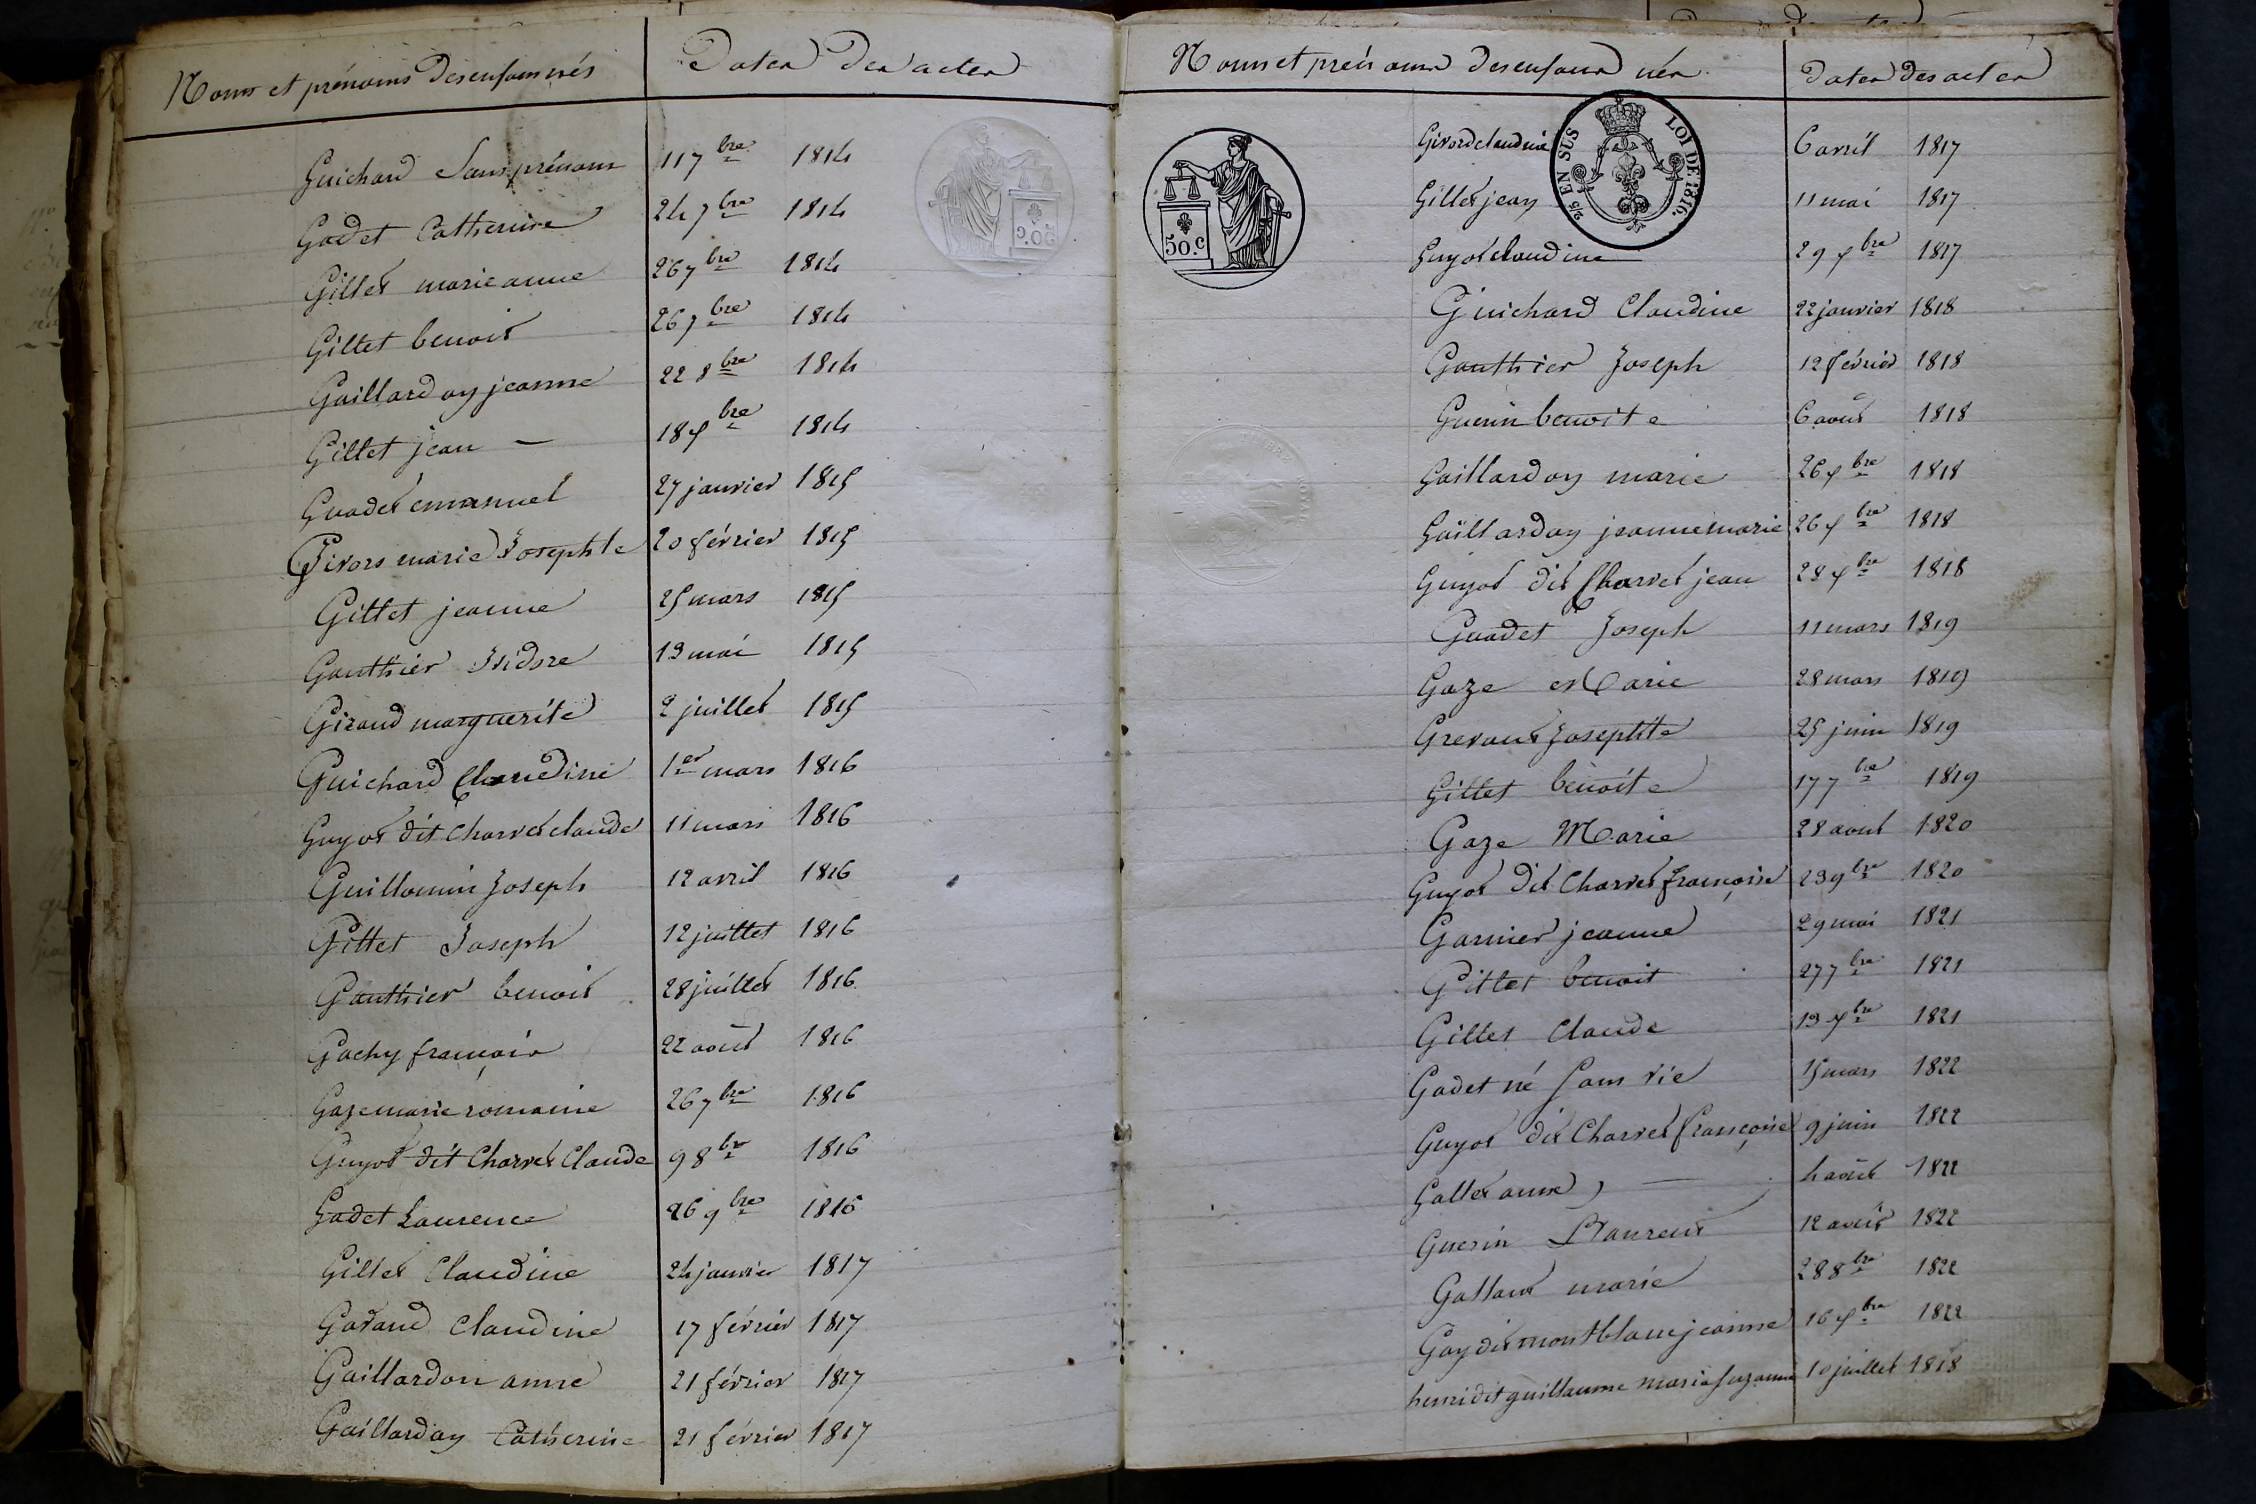 Noms et prénoms des enfans nés Dates des actes
Guichard Sans prénom 11 7bre 1814
Gadet Catherine 24 7bre 1814
Gillet marie anne 26 7bre 1814
Gillet benoit 26 7bre 1814
Gaillardon jeanne 22 8bre 1814
Gillet jean — 18 xbre 1814
Guadet emanuel 27 janvier 1815
Givors marie Josephte 20 février 1815
Gillet jeanne 25 mars 1815
Gauthier Isidore 13 mai 1815
Giraud marguerite 2 juillet 1815
Guichard Claudine 1er mars 1816
Guyot dit Charvet claude 11 mars 1816
Guillomin Joseph 12 avril 1816
Gillet Joseph 12 juillet 1816
Gauthier benoit 28 juillet 1816
Gachy françois 22 août 1816
Gaze marie romaine 26 7bre 1816
Guyot dit Charvet Claude 9 8bre 1816
Gadet Laurence 26 9bre 1816
Gillet Claudine 24 janvier 1817
Garaud Claudine 17 février 1817
Gaillardon anne 21 février 1817
Gaillardon Catherine 21 février 1817
Noms et prénoms des enfans nés Dates des actes
50.c
2/5 EN SUS LOI DE 1816.
Girord claudine 6 avril 1817
Gillet jean 11 mai 1817
Guyot claudine 29 xbre 1817
Guichard Claudine 22 janvier 1818
Gauthier Joseph 12 février 1818
Guerin benoite 6 août 1818
Gaillardon marie 26 xbre 1818
Gaillardon jeanne marie 26 xbre 1818
Guyot dit Charvet jean 28 xbre 1818
Guadet Joseph 11 mars 1819
Gaze Marie 28 mars 1819
Josephte 25 juin 1819
Gillet benoite 17 7bre 1819
Gaze Marie 28 aout 1820
Guyot dit Charvet françoise 23 9bre 1820
Garnier jeanne 29 mai 1821
Gillet benoit 27 7bre 1821
Gillet Claude 13 xbre 1821
Gadet né sans vie 15 mars 1822
Guyot dit Charvet françoise 9 juin 1822
Gallet anne, — 4 août 1822
Guerin Laurent 12 août 1822
Galland marie 28 8bre 1822
Gay dit montblanc jeanne 16 xbre 1822
henri dit guillaume marie suzanne 10 juillet 1818